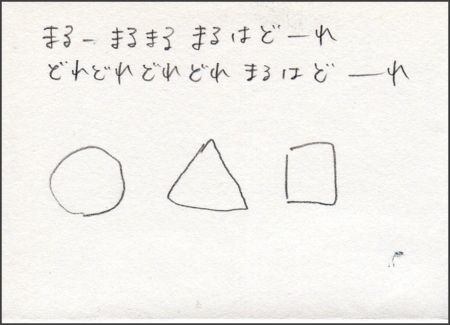 まるー まるまる まるはどーれ
どれどれどれどれ まるはどーれ